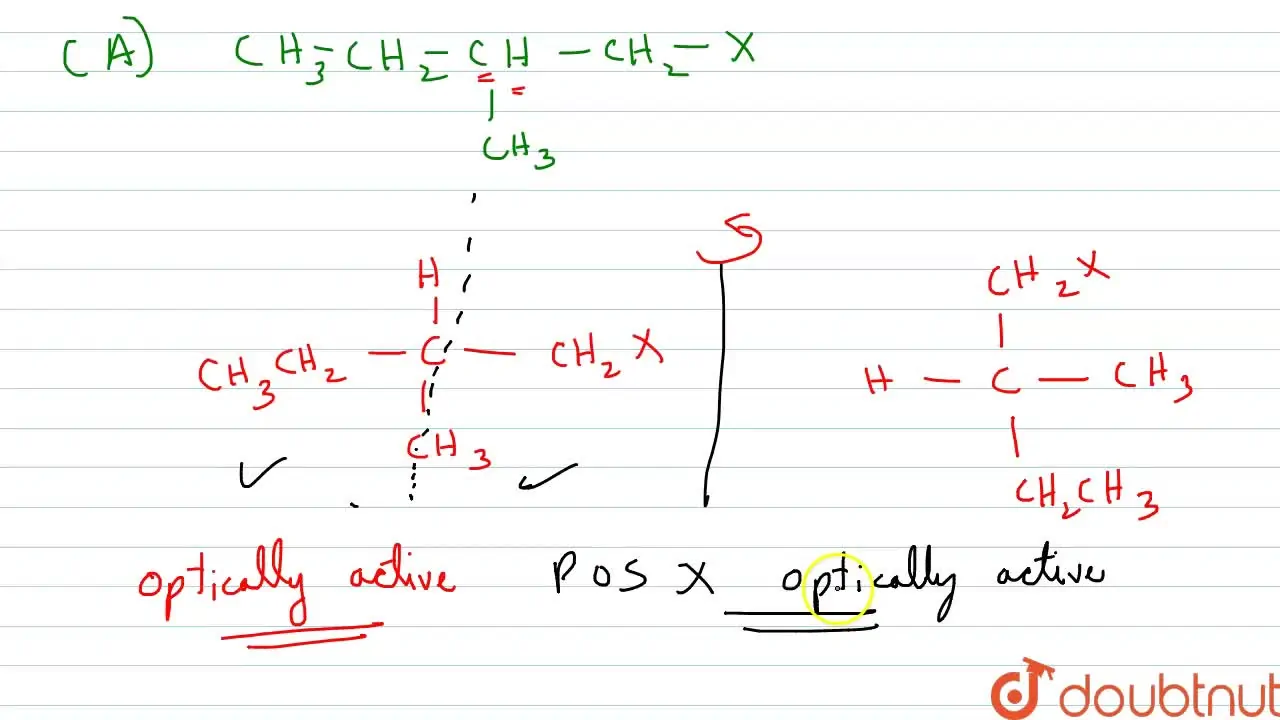 (A) CH3-CH2-CH-CH2-X
CH3
H
CH3CH2-C-CH2X
CH3
CH2X
H-C-CH3
CH2CH3
optically active POS X optically active
doubtnut